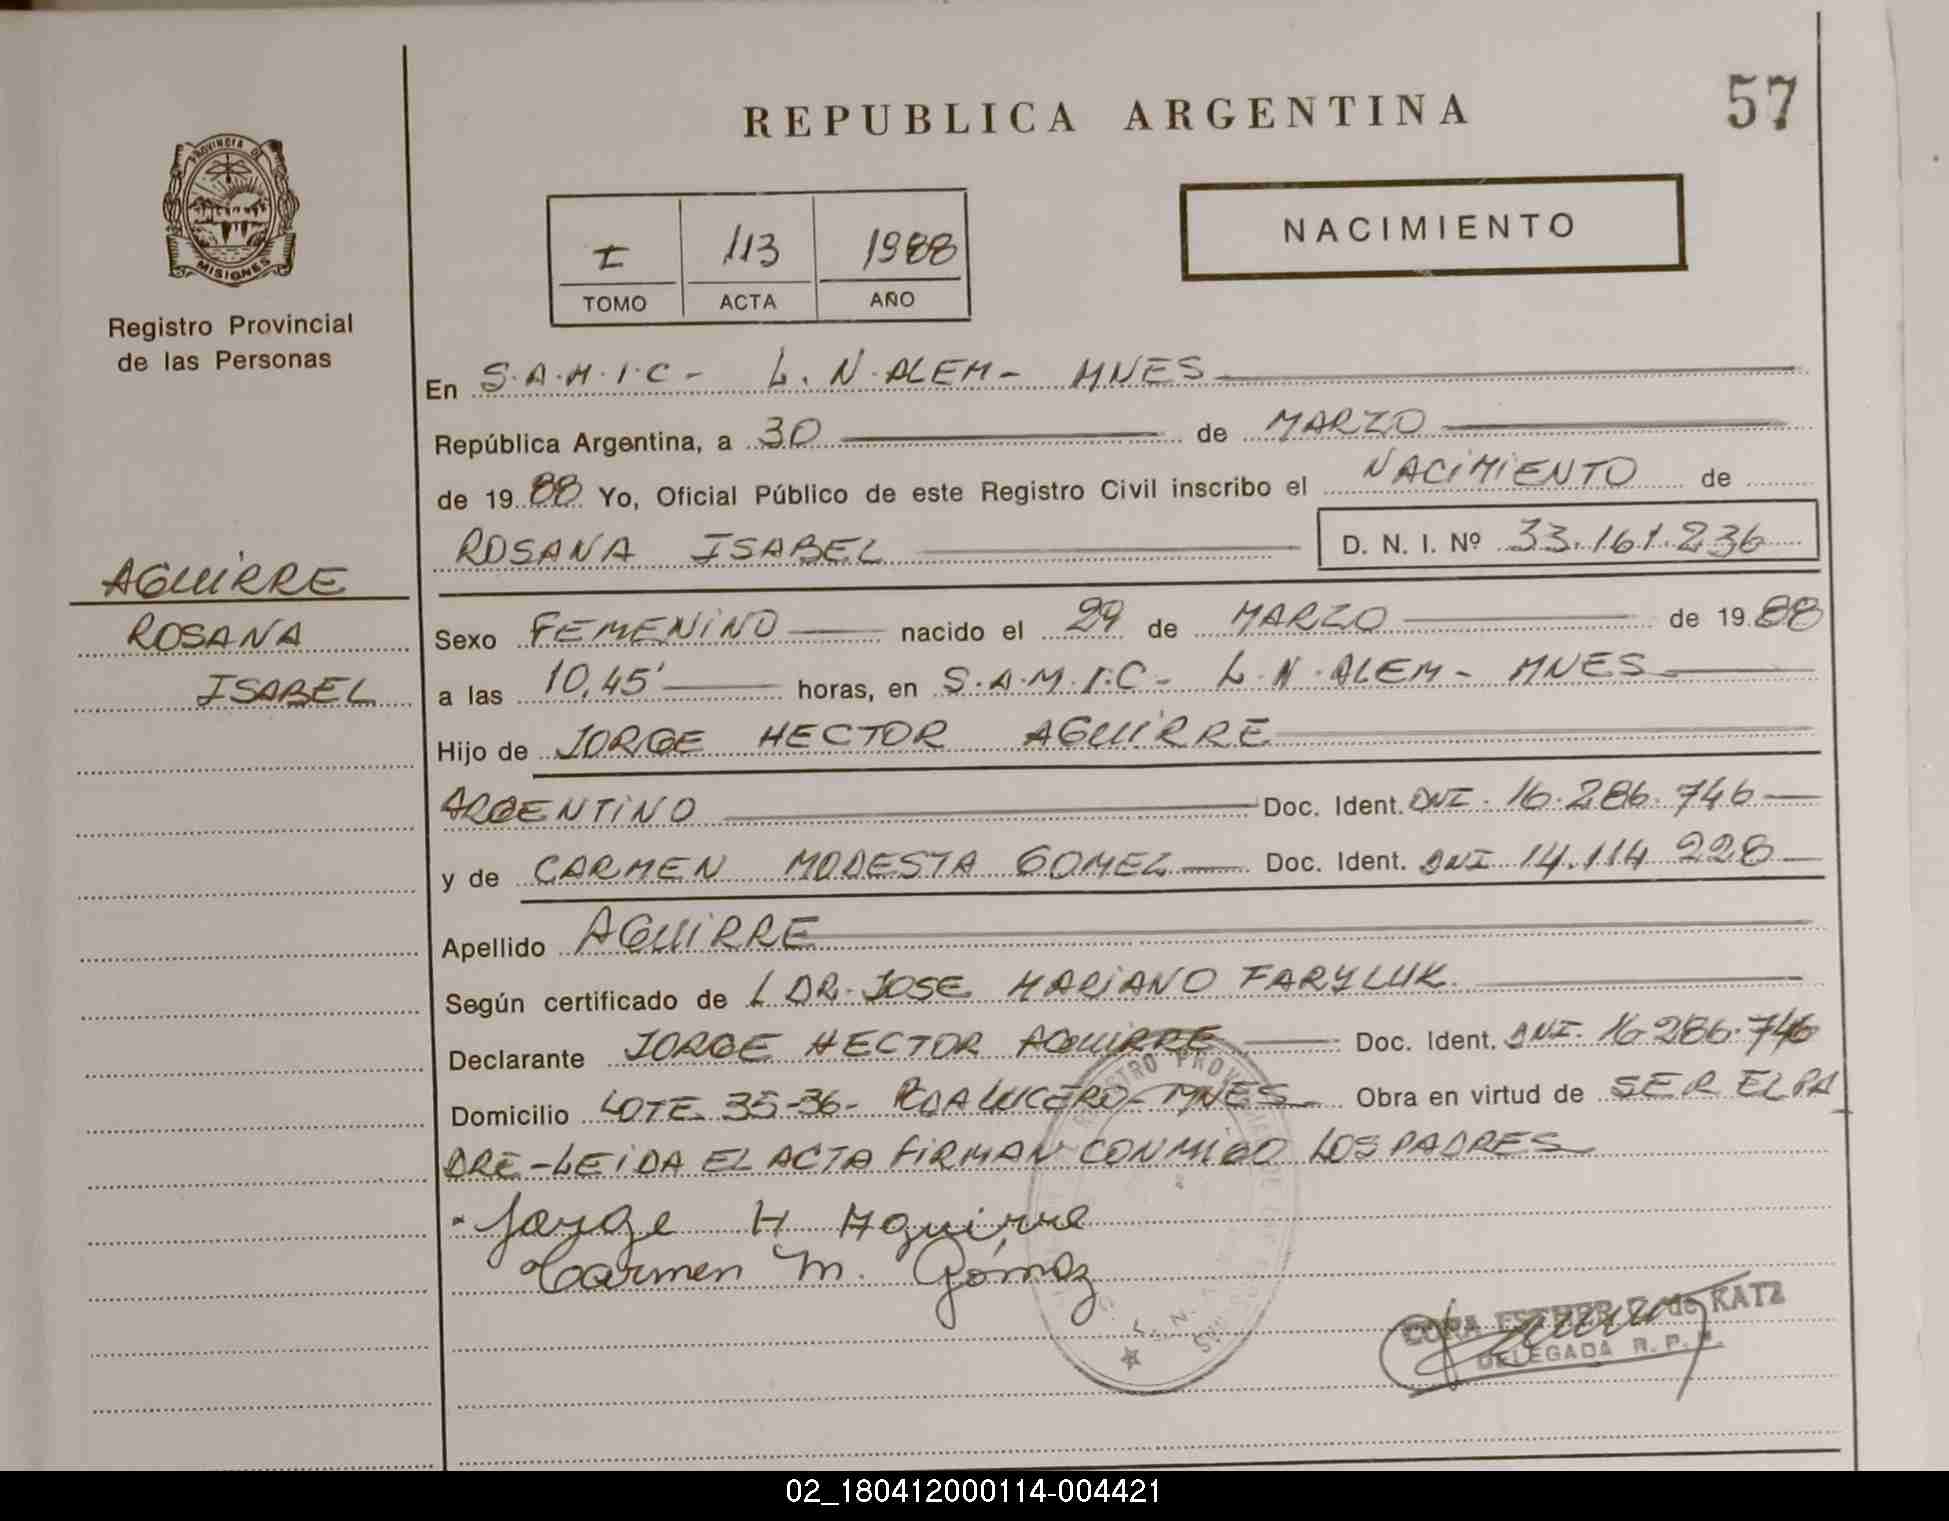 REPUBLICA ARGENTINA
57
PROVINCIA DE
MISIONES
Registro Provincial
de las Personas
I 113 1988
TOMO ACTA AÑO
NACIMIENTO
En S.A.M.I.C- L.N.ALEM- MNES
República Argentina, a 30 de MARZO
de 1988 Yo, Oficial Público de este Registro Civil inscribo el NACIMIENTO de
ROSANA ISABEL D. N. I. Nº 33.161.236
AGUIRRE
ROSANA
ISABEL
Sexo FEMENINO nacido el 29 de MARZO de 1988
a las 10,45' horas, en S.A.M.I.C- L.N.ALEM- MNES
Hijo de JORGE HECTOR AGUIRRE
ARGENTINO Doc. Ident. DNI. 16.286.746
y de CARMEN MODESTA GOMEZ Doc. Ident. DNI 14.114.228
Apellido AGUIRRE
Según certificado de L DR. JOSE MARIANO FARYLUK
Declarante JORGE HECTOR AGUIRRE Doc. Ident. DNI. 16.286.746
Domicilio LOTE 35-36- PCDA LUCERO- MNES Obra en virtud de SER EL PA
DRE-LEIDA EL ACTA FIRMAN CONMIGO LOS PADRES
Jorge H Aguirre
Carmen M. Gómez
CORA ESTHER de KATZ
DELEGADA R. P. P.
02_180412000114-004421